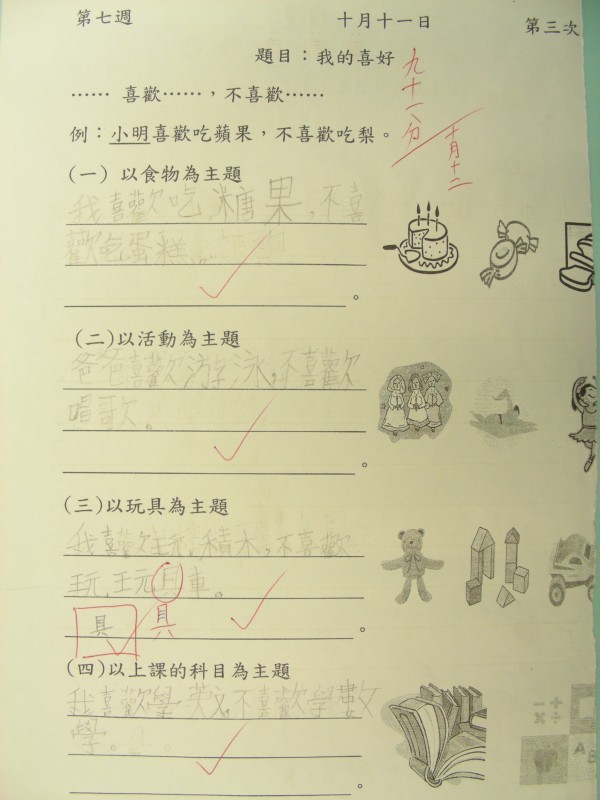 第七週 十月十一日 第三次
題目：我的喜好
…… 喜歡……，不喜歡……
九十八分
十月十二
例：小明喜歡吃蘋果，不喜歡吃梨。
(一) 以食物為主題
我喜歡吃糖果，不喜
歡吃蛋糕
。
(二)以活動為主題
爸爸喜歡游泳，不喜歡
唱歌。
。
(三)以玩具為主題
我喜歡玩積木，不喜歡
玩玩具車。
具 具
。
(四)以上課的科目為主題
我喜歡學英文，不喜歡學數
學。
。